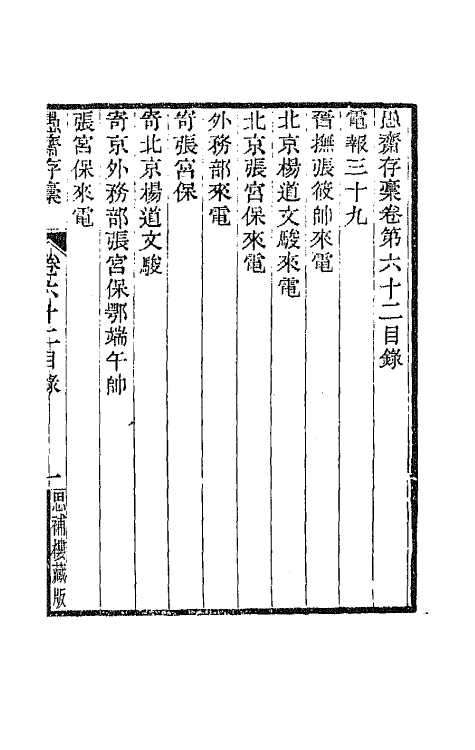 愚齋存稾卷第六十二目錄
電報三十九
晉撫張筱帥來電
北京楊道文駿來電
北京張宮保來電
外務部來電
寄張宮保
寄北京楊道文駿
寄京外務部張宮保鄂端午帥
張宮保來電
愚齋存稾
卷六十二目錄
一
思補樓藏版